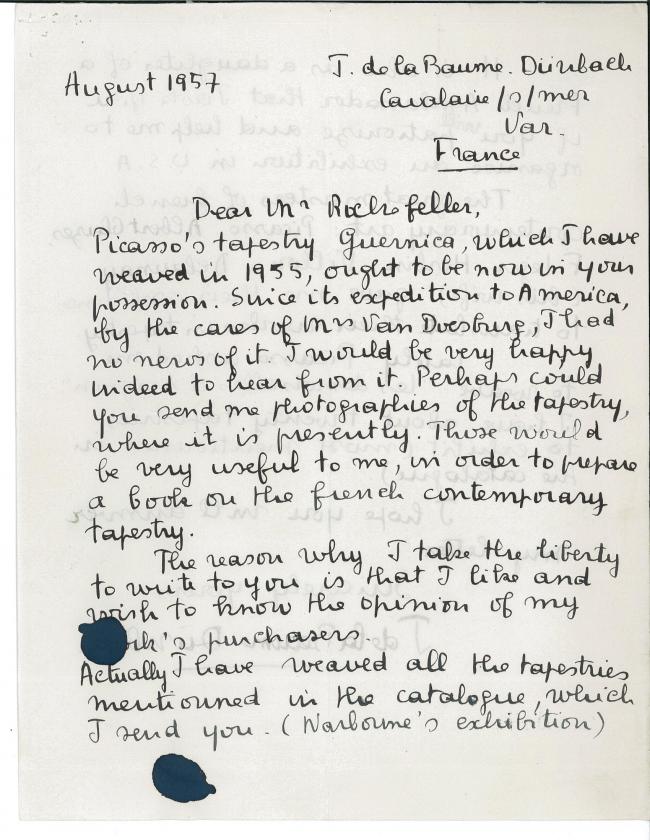 August 1957
J. de la Baume. Dürrbach
Cavalaire/s/mer
Var.
France
Dear Mr Rockefeller,
Picasso's tapestry Guernica, which I have
weaved in 1955, ought to be now in your
possession. Since its expedition to America,
by the cares of Mrs Van Doesburg, I had
no news of it. I would be very happy
indeed to hear from it. Perhaps could
you send me photographies of the tapestry,
where it is presently. Those would
be very useful to me, in order to prepare
a book on the french contemporary
tapestry.
The reason why I take the liberty
to write to you is that I like and
wish to know the opinion of my
's purchasers.
Actually I have weaved all the tapestries
mentionned in the catalogue, which
I send you. (Narbonne's exhibition)